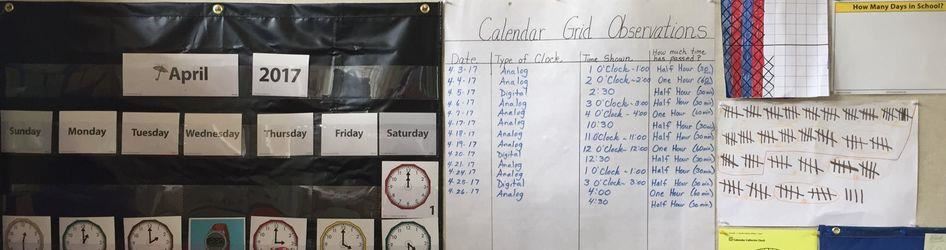 April 2017
Sunday Monday Tuesday Wednesday Thursday Friday Saturday
1
Calendar Grid Observations
Date Type of Clock Time Shown How much time has passed?
4-3-17 Analog 1 O'Clock - 1:00 Half Hour
4-4-17 Analog 2 O'Clock - 2:00 One Hour
4-5-17 Digital 2:30 Half Hour (30 min)
4-6-17 Analog 3 O'Clock - 3:00 Half Hour (30 min)
4-7-17 Analog 4 O'Clock - 4:00 One Hour (60 min)
4-17-17 Analog 10:30 Half Hour (30 min)
4-18-17 Analog 11 O'Clock - 11:00 Half Hour (30 min)
4-19-17 Analog 12 O'Clock - 12:00 One Hour (60 min)
4-20-17 Digital 12:30 Half Hour (30 min)
4-21-17 Analog 1 O'Clock - 1:00 Half Hour (30 min)
4-24-17 Analog 3 O'Clock - 3:00 Half Hour (30 min)
4-25-17 Digital 4:00 One Hour (60 min)
4-26-17 Analog 4:30 Half Hour (30 min)
How Many Days in School?